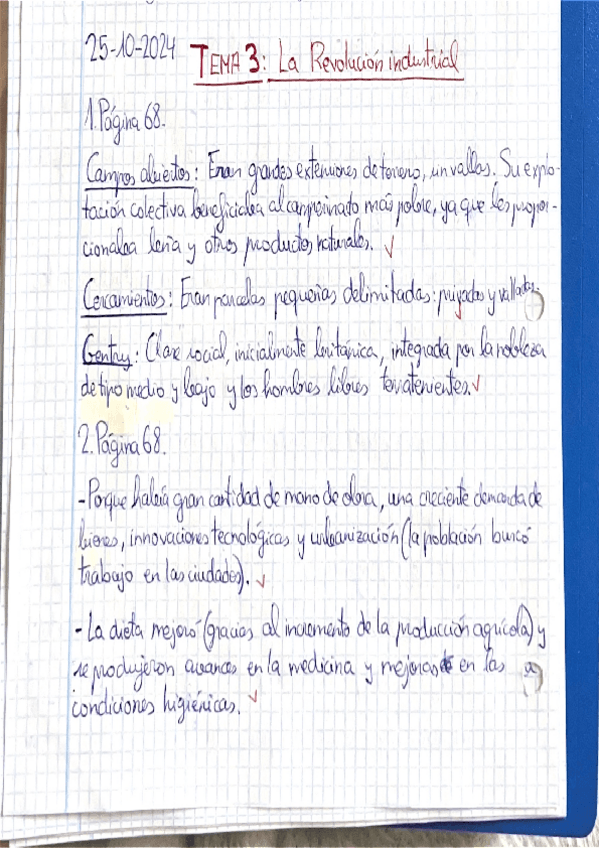 25-10-2024 TEMA 3: La Revolución industrial
1. Página 68.
Campos abiertos: Eran grandes extensiones de terreno, sin vallas. Su explo-
tación colectiva beneficiaba al campesinado más pobre, ya que les propor-
cionaba leña y otros productos naturales.
Cercamientos: Eran parcelas pequeñas delimitadas: privadas y valladas.
Gentry: Clase social, inicialmente británica, integrada por la nobleza
de tipo medio y bajo y los hombres libres terratenientes.
2. Página 68.
-Porque había gran cantidad de mano de obra, una creciente demanda de
bienes, innovaciones tecnológicas y urbanización (la población buscó
trabajo en las ciudades).
- La dieta mejoró (gracias al incremento de la producción agrícola) y
se produjeron avances en la medicina y mejoras en las
condiciones higiénicas.